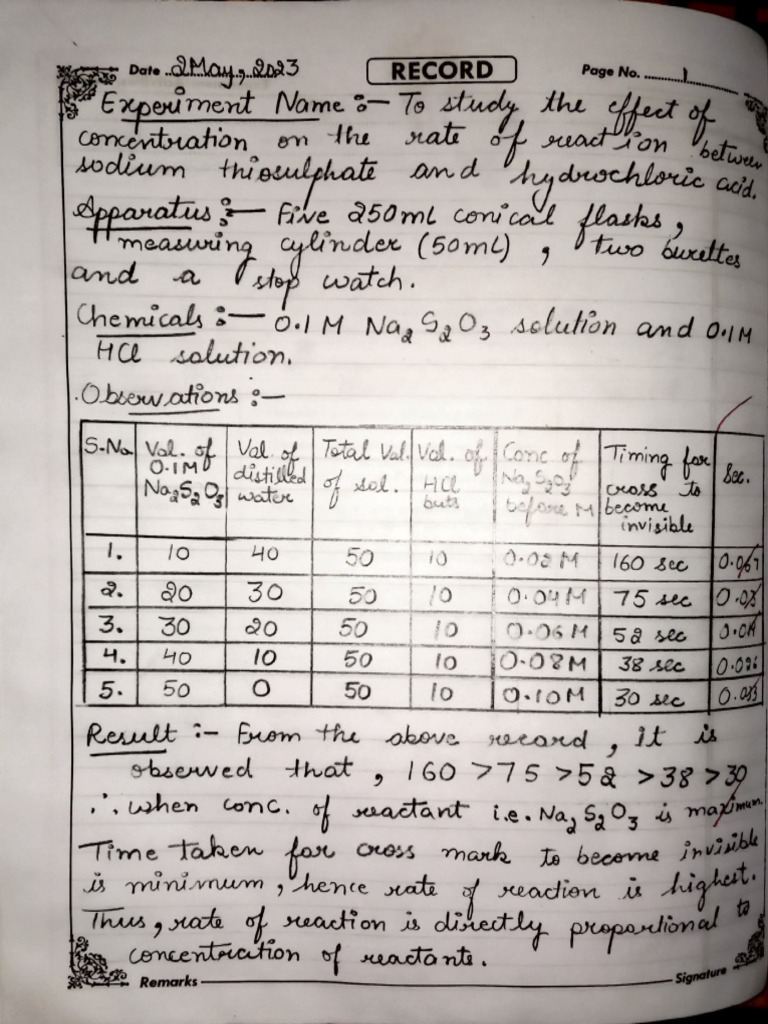 Date 2 May, 2023 RECORD Page No. 1
Experiment Name :- To study the effect of
concentration on the rate of reaction between
sodium thiosulphate and hydrochloric acid.
Apparatus :- Five 250ml conical flasks,
measuring cylinder (50ml), two burettes
and a stop watch.
Chemicals :- 0.1M Na2S2O3 solution and 0.1M
HCl solution.
Observations :-
S.No. Vol. of 0.1M Na2S2O3 Vol. of distilled water Total Vol. of sol. Vol. of HCl Conc of Na2S2O3 before M Timing for cross to become invisible Sec.
1. 10 40 50 10 0.02M 160 sec
2. 20 30 50 10 0.04M 75 sec
3. 30 20 50 10 0.06M 52 sec
4. 40 10 50 10 0.08M 38 sec 0.026
5. 50 0 50 10 0.10M 30 sec 0.033
Result :- From the above record, it is
observed that, 160 >75 >52 >38 >30
∴ when conc. of reactant i.e. Na2S2O3 is maximum.
Time taken for cross mark to become invisible
is minimum, hence rate of reaction is highest.
Thus, rate of reaction is directly proportional to
concentration of reactants.
Remarks Signature